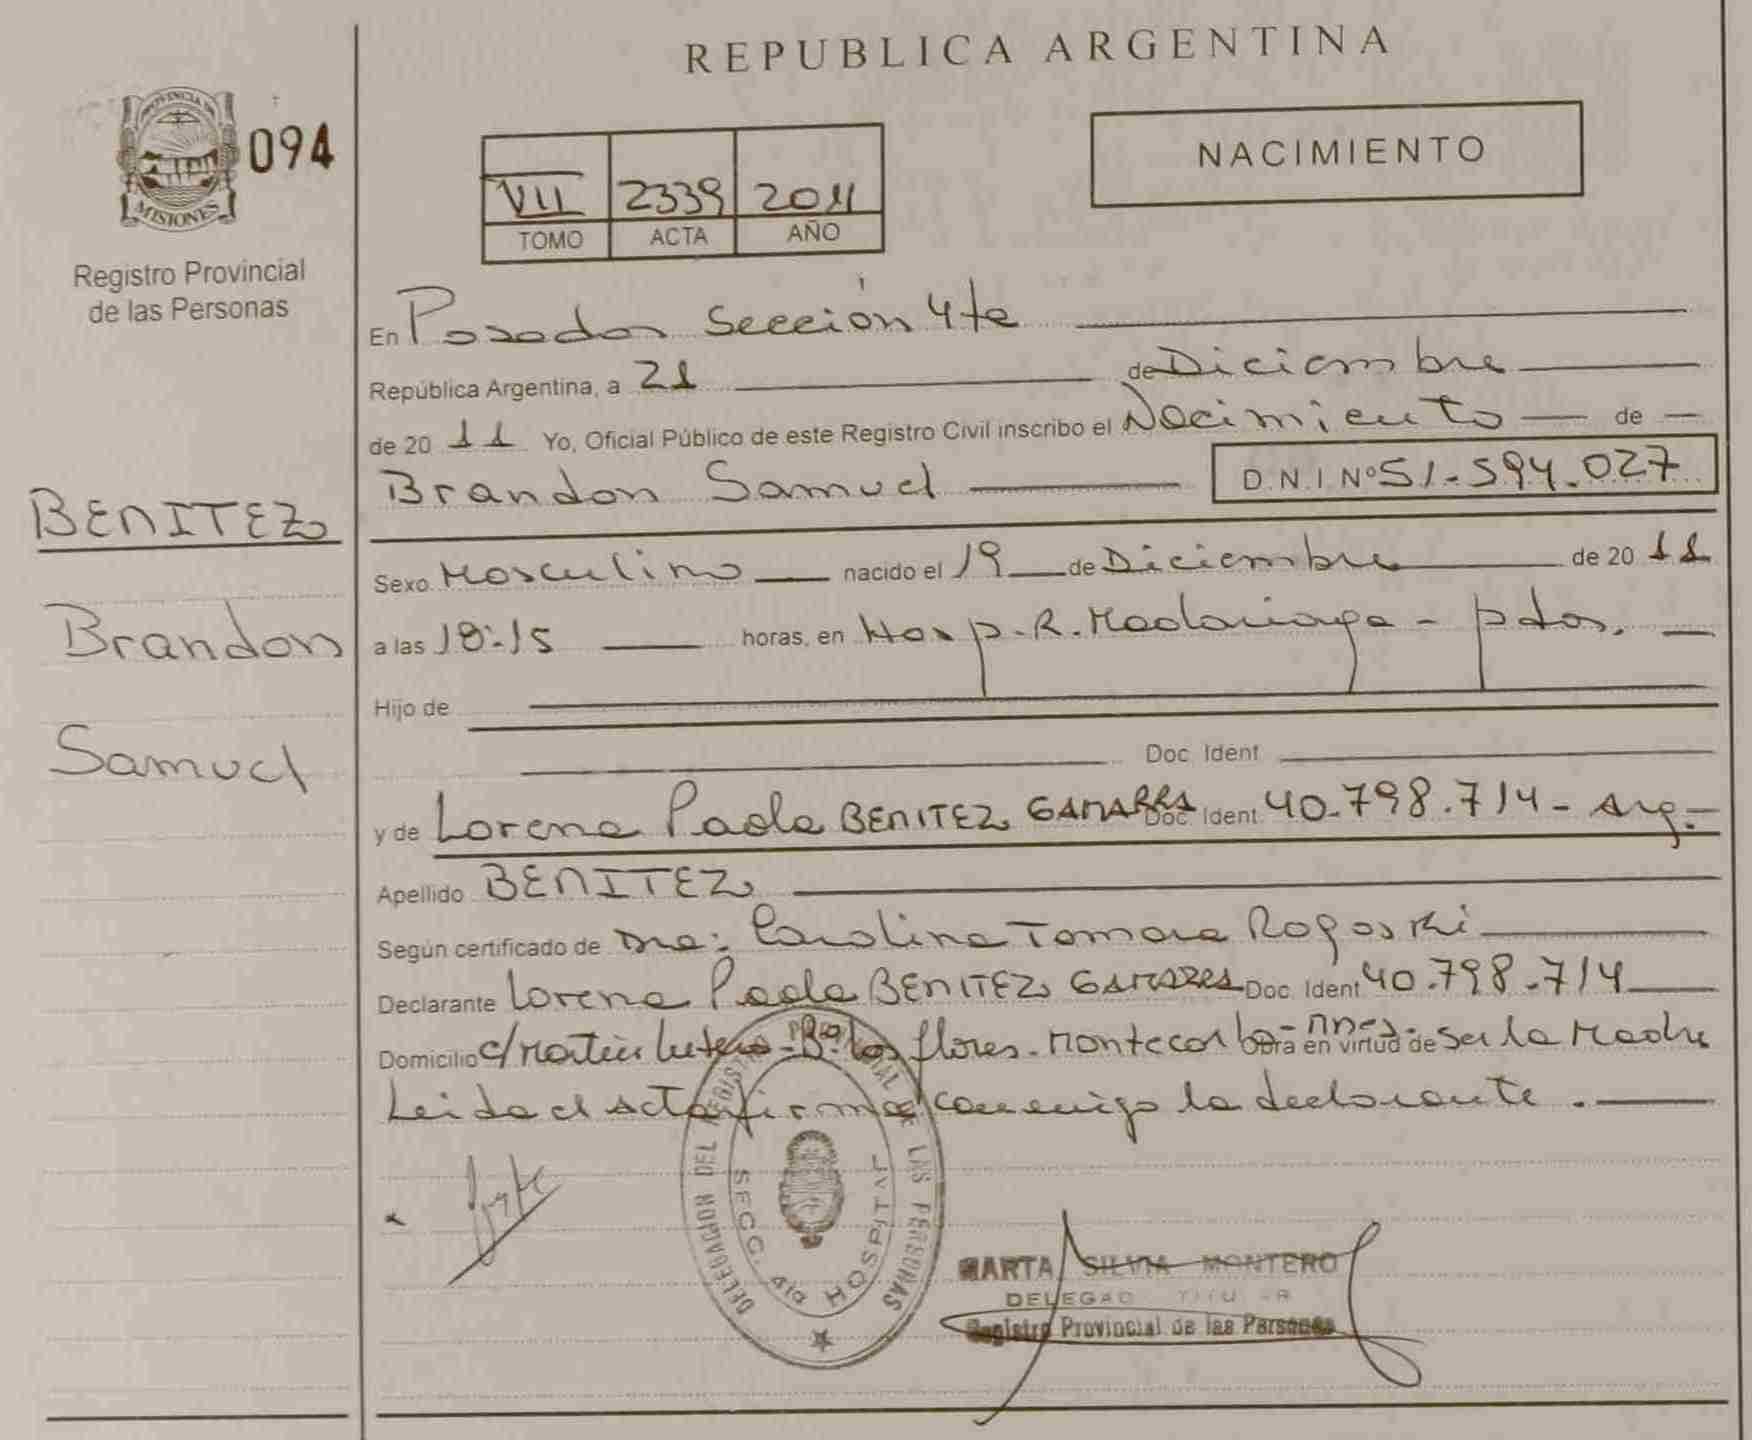 REPUBLICA ARGENTINA
PROVINCIA DE
MISIONES
094
Registro Provincial
de las Personas
NACIMIENTO
VII 2339 2011
TOMO ACTA AÑO
En Posadas Sección 4ta
República Argentina, a 21 de Diciembre
de 20 11 Yo, Oficial Público de este Registro Civil inscribo el Nacimiento de
Brandon Samuel D.N.I. Nº 51.594.027
BENITEZ
Brandon
Samuel
Sexo Masculino nacido el 19 de Diciembre de 20 11
a las 18:15 horas, en Hosp. R. Madariaga - pdas.
Hijo de
Doc. Ident
y de Lorena Paola BENITEZ GAMARRA Doc. Ident. 40.798.714 - Arg.-
Apellido BENITEZ
Según certificado de Dra: Carolina Tamara Rogoski
Declarante Lorena Paola BENITEZ GAMARRA Doc. Ident 40.798.714
Domicilio c/ Martin Lutero - Bº. las flores - Montecarlo - Mnes. Obra en virtud de ser la Madre
Leida el acta firma conmigo la declarante.
DELEGACION DEL REGISTRO PROVINCIAL DE LAS PERSONAS
SECC. 4ta HOSPITAL
MARTA SILVIA MONTERO
DELEGADO TITULAR
Registro Provincial de las Personas